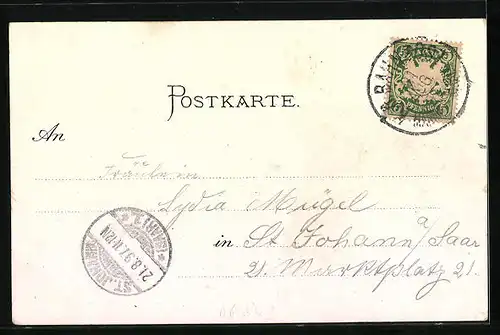 POSTKARTE.
An
Fräulein
Lydia Mügel
in St. Johann a/Saar
21. Marktplatz 21.
21.8.97.